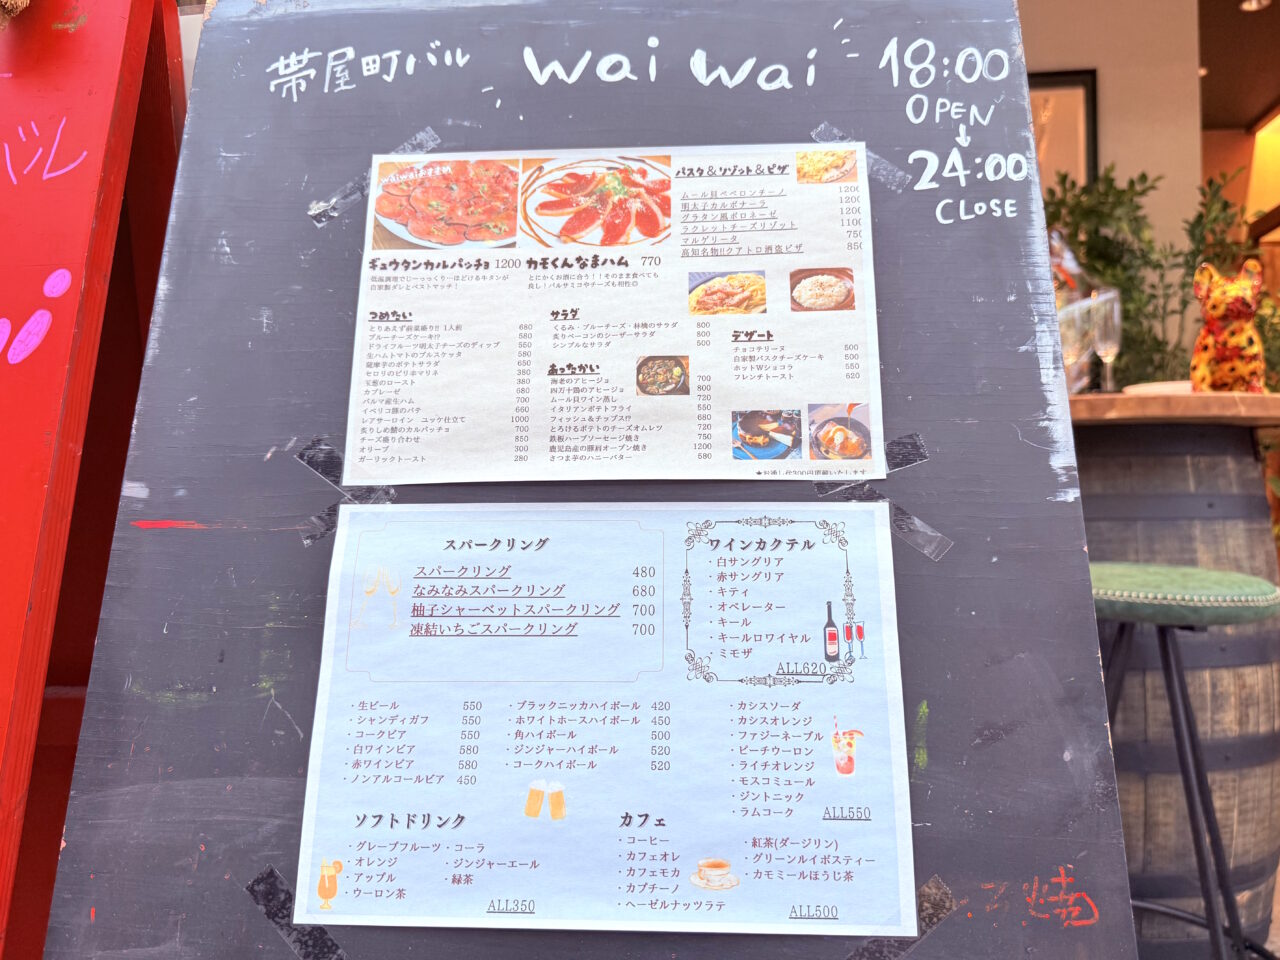 帯屋町バル wai wai
18:00
OPEN
↓
24:00
CLOSE
waiwaiおすすめ
ギュウタンカルパッチョ 1200
低温調理でじーっっくり…ほどける牛タンが
自家製ダレとベストマッチ！
カモくんなまハム 770
とにかくお酒に合う！！そのまま食べても
良し！バルサミコやチーズも相性◎
パスタ＆リゾット＆ピザ
ムール貝ペペロンチーノ 1200
明太子カルボナーラ 1200
グラタン風ボロネーゼ 1200
ラクレットチーズリゾット 1100
マルゲリータ 750
高知名物!!クアトロ酒盗ピザ 850
つめたい
とりあえず前菜盛り!! 1人前 680
ブルーチーズケーキ!? 580
ドライフルーツ明太子チーズのディップ 550
生ハムトマトのブルスケッタ 580
薩摩芋のポテトサラダ 650
セロリのピリ辛マリネ 380
玉葱のロースト 380
カプレーゼ 680
パルマ産生ハム 700
イベリコ豚のパテ 660
レアサーロイン ユッケ仕立て 1000
炙りしめ鯖のカルパッチョ 700
チーズ盛り合わせ 850
オリーブ 300
ガーリックトースト 280
サラダ
くるみ・ブルーチーズ・林檎のサラダ 800
炙りベーコンのシーザーサラダ 800
シンプルなサラダ 500
あったかい
海老のアヒージョ 700
四万十鶏のアヒージョ 800
ムール貝ワイン蒸し 720
イタリアンポテトフライ 550
フィッシュ＆チップス!? 680
とろけるポテトのチーズオムレツ 720
鉄板ハーブソーセージ焼き 750
鹿児島産の豚肩オーブン焼き 1200
さつま芋のハニーバター 580
デザート
チョコテリーヌ 500
自家製バスクチーズケーキ 500
ホットWショコラ 550
フレンチトースト 620
★お通し代300円頂戴いたします
スパークリング
スパークリング 480
なみなみスパークリング 680
柚子シャーベットスパークリング 700
凍結いちごスパークリング 700
ワインカクテル
・白サングリア
・赤サングリア
・キティ
・オペレーター
・キール
・キールロワイヤル
・ミモザ
ALL620
・生ビール 550
・シャンディガフ 550
・コークビア 550
・白ワインビア 580
・赤ワインビア 580
・ノンアルコールビア 450
・ブラックニッカハイボール 420
・ホワイトホースハイボール 450
・角ハイボール 500
・ジンジャーハイボール 520
・コークハイボール 520
・カシスソーダ
・カシスオレンジ
・ファジーネーブル
・ピーチウーロン
・ライチオレンジ
・モスコミュール
・ジントニック
・ラムコーク
ALL550
ソフトドリンク
・グレープフルーツ
・オレンジ
・アップル
・ウーロン茶
・コーラ
・ジンジャーエール
・緑茶
ALL350
カフェ
・コーヒー
・カフェオレ
・カフェモカ
・カプチーノ
・ヘーゼルナッツラテ
・紅茶(ダージリン)
・グリーンルイボスティー
・カモミールほうじ茶
ALL500